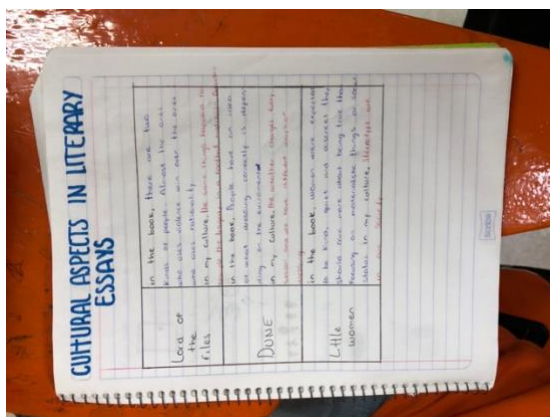 CULTURAL ASPECTS IN LITERARY
ESSAYS
Lord of
the
Files
in the book, there are two
kinds of people. Almost the ones
who uses violence win over the ones
who uses rationality
in my culture, the same things happen
DUNE
in the book, People have an idea
of what dressing correctly is depen
ding on the environment
in my culture, the weather changes
Little
Women
in the book, women were expected
to be kind, quiet and discreet they
should care more about being
focusing on materialistic things or social
status in my culture, stereotypes are